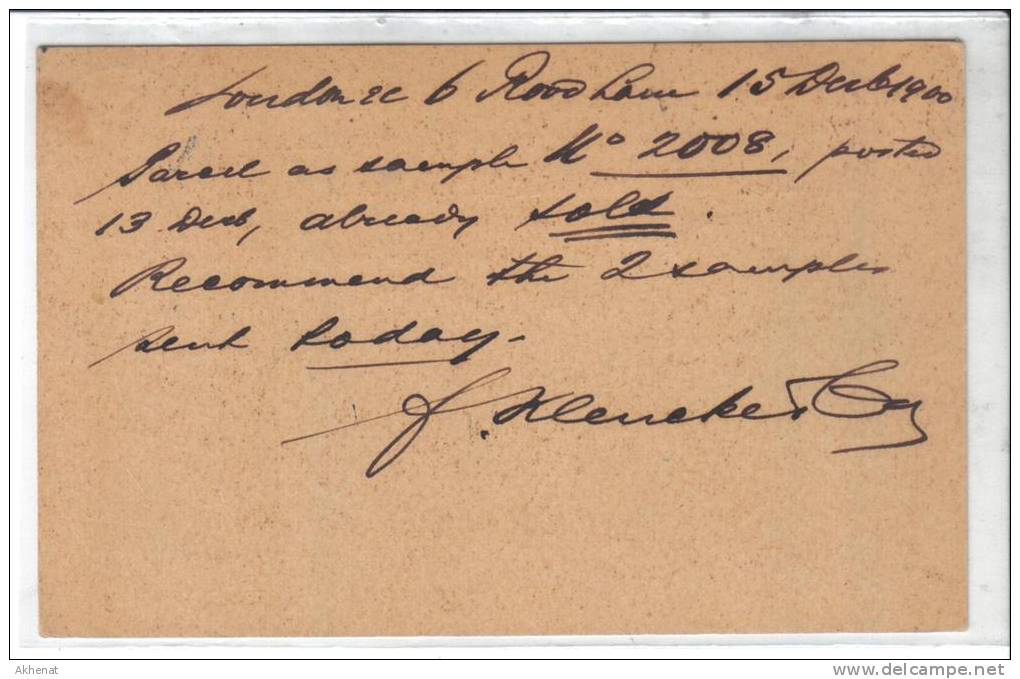 London EC 6 Rood Lane 15 Decb 1900
Parcel as sample No 2008, posted
13 Decb, already sold.
Recommend the 2 samples
sent today.
J. Klencke & Cy
Akhenat
www.delcampe.net